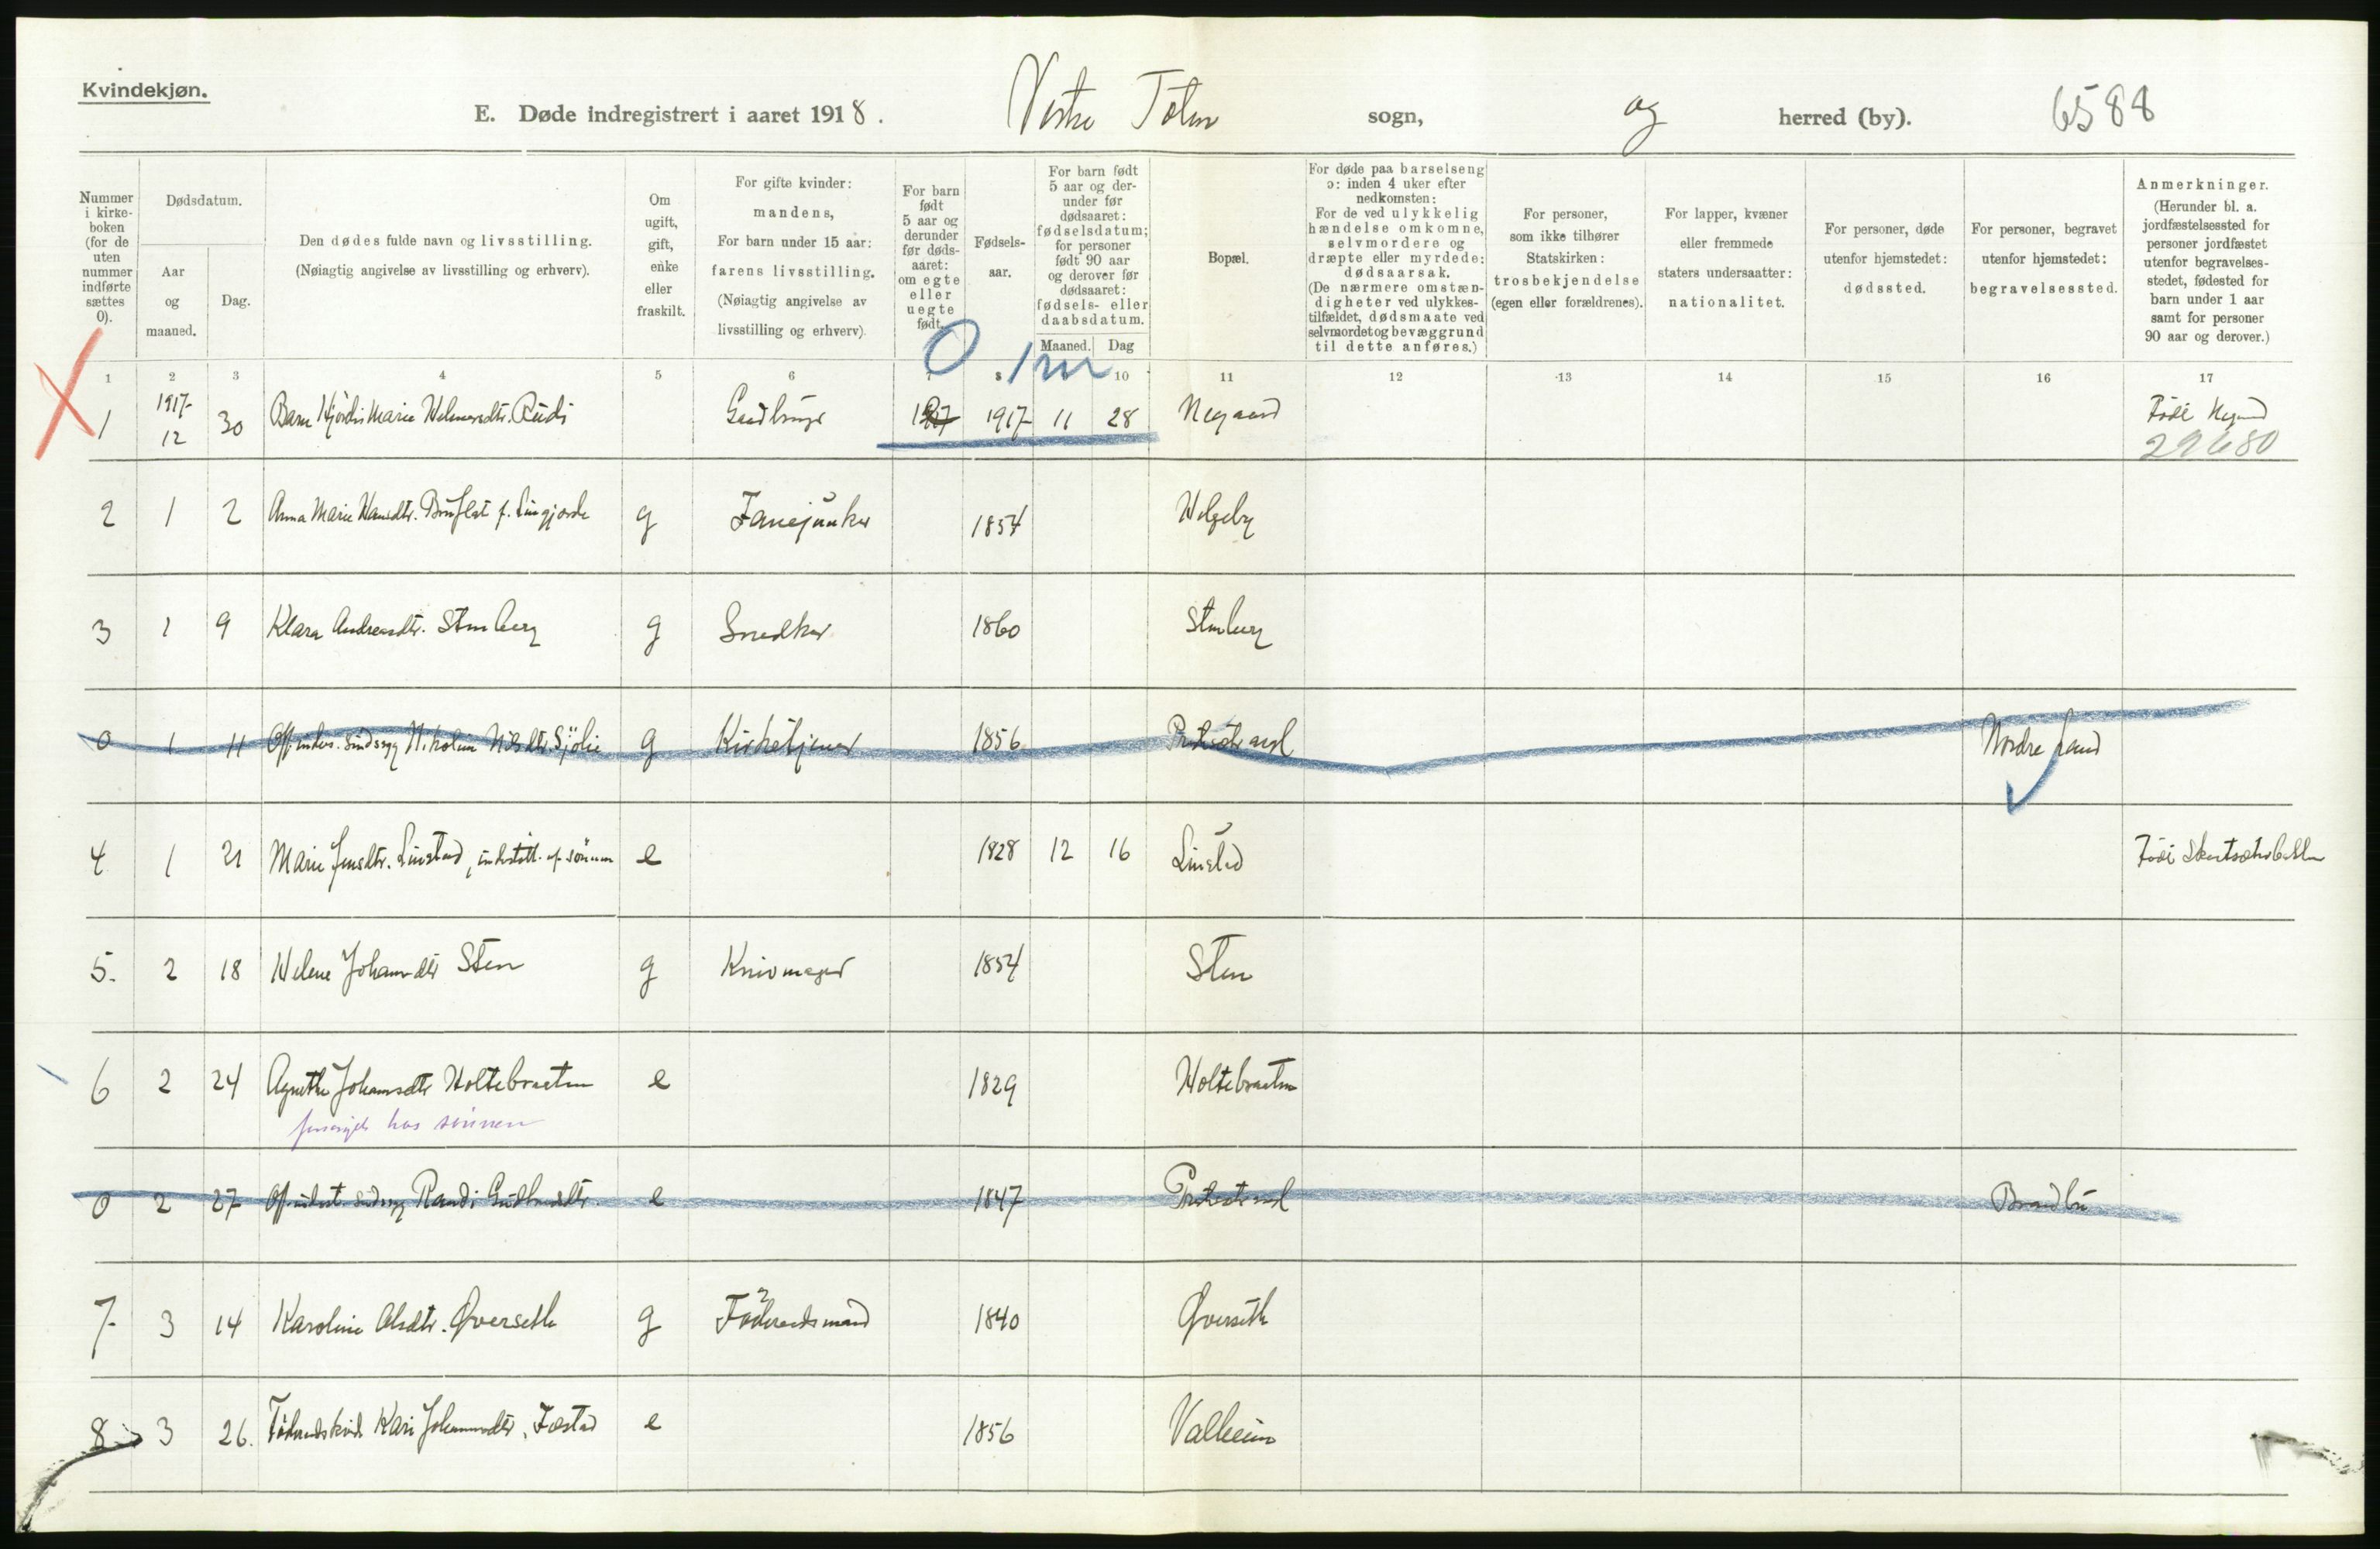 Kvindekjøn.
E. Døde indregistrert i aaret 1918. Vestre Toten sogn, og herred (by). 6588
Nummer i kirke-boken (for de uten nummer indførte sættes 0).
Dødsdatum.
Aar og maaned.
Dag.
Den dødes fulde navn og livsstilling.
(Nøiagtig angivelse av livsstilling og erhverv).
Om ugift, gift, enke eller fraskilt.
For gifte kvinder: mandens,
For barn under 15 aar: farens livsstilling.
(Nøiagtig angivelse av livsstilling og erhverv).
For barn født 5 aar og derunder før døds-aaret: om egte eller uegte født.
Fødsels-aar.
For barn født 5 aar og der-under før dødsaaret: fødselsdatum; for personer født 90 aar og derover før dødsaaret: fødsels- eller daabsdatum.
Maaned. Dag
Bopæl.
For døde paa barselseng ɔ: inden 4 uker efter nedkomsten:
For de ved ulykkelig hændelse omkomne, selvmordere og dræpte eller myrdede: dødsaarsak.
(De nærmere omstæn-digheter ved ulykkes-tilfældet, dødsmaate ved selvmordet og bevæggrund til dette anføres.)
For personer, som ikke tilhører Statskirken: trosbekjendelse (egen eller forældrenes).
For lapper, kvæner eller fremmede staters undersaatter: nationalitet.
For personer, døde utenfor hjemstedet: dødssted.
For personer, begravet utenfor hjemstedet: begravelsessted.
Anmerkninger.
(Herunder bl. a. jordfæstelsessted for personer jordfæstet utenfor begravelses-stedet, fødested for barn under 1 aar samt for personer 90 aar og derover.)
0 1 m
1 2 3 4 5 6 7 8 10 11 12 13 14 15 16 17
1 1917- 12 30 Barn Hjördis Marie Helmersdtr. Rudi 1917 11 28 Negaard Född Negaard
29680
2 1 2 Anna Marie Hansdtr. Bruflat f. g Fanejunker 1854 Helgeby
3 1 9 Klara Andreasdtr. Stenberg g Snedker 1860 Stenberg
0 1 11 Nikoline Nilsdtr. Sjölie g Kirketjener 1856 Nordre Land
4 1 21 Marie Jensdtr. Linstad, e 1828 12 16 Linstad
5. 2 18 Helene Johannsdtr Sten g Knivmager 1854 Sten
6 2 24 Agnethe Johannsdtr Holtebraaten e 1829 Holtebraaten
forsørget hos sønnen
0 2 27 Randi Gudbrandsdtr. e 1847 Brandbu
7 3 14 Karoline Olsdtr. Øverseth g Föderaadsmand 1840 Øverseth
8 3 26. Kari Johannesdtr. e 1856 Valheim